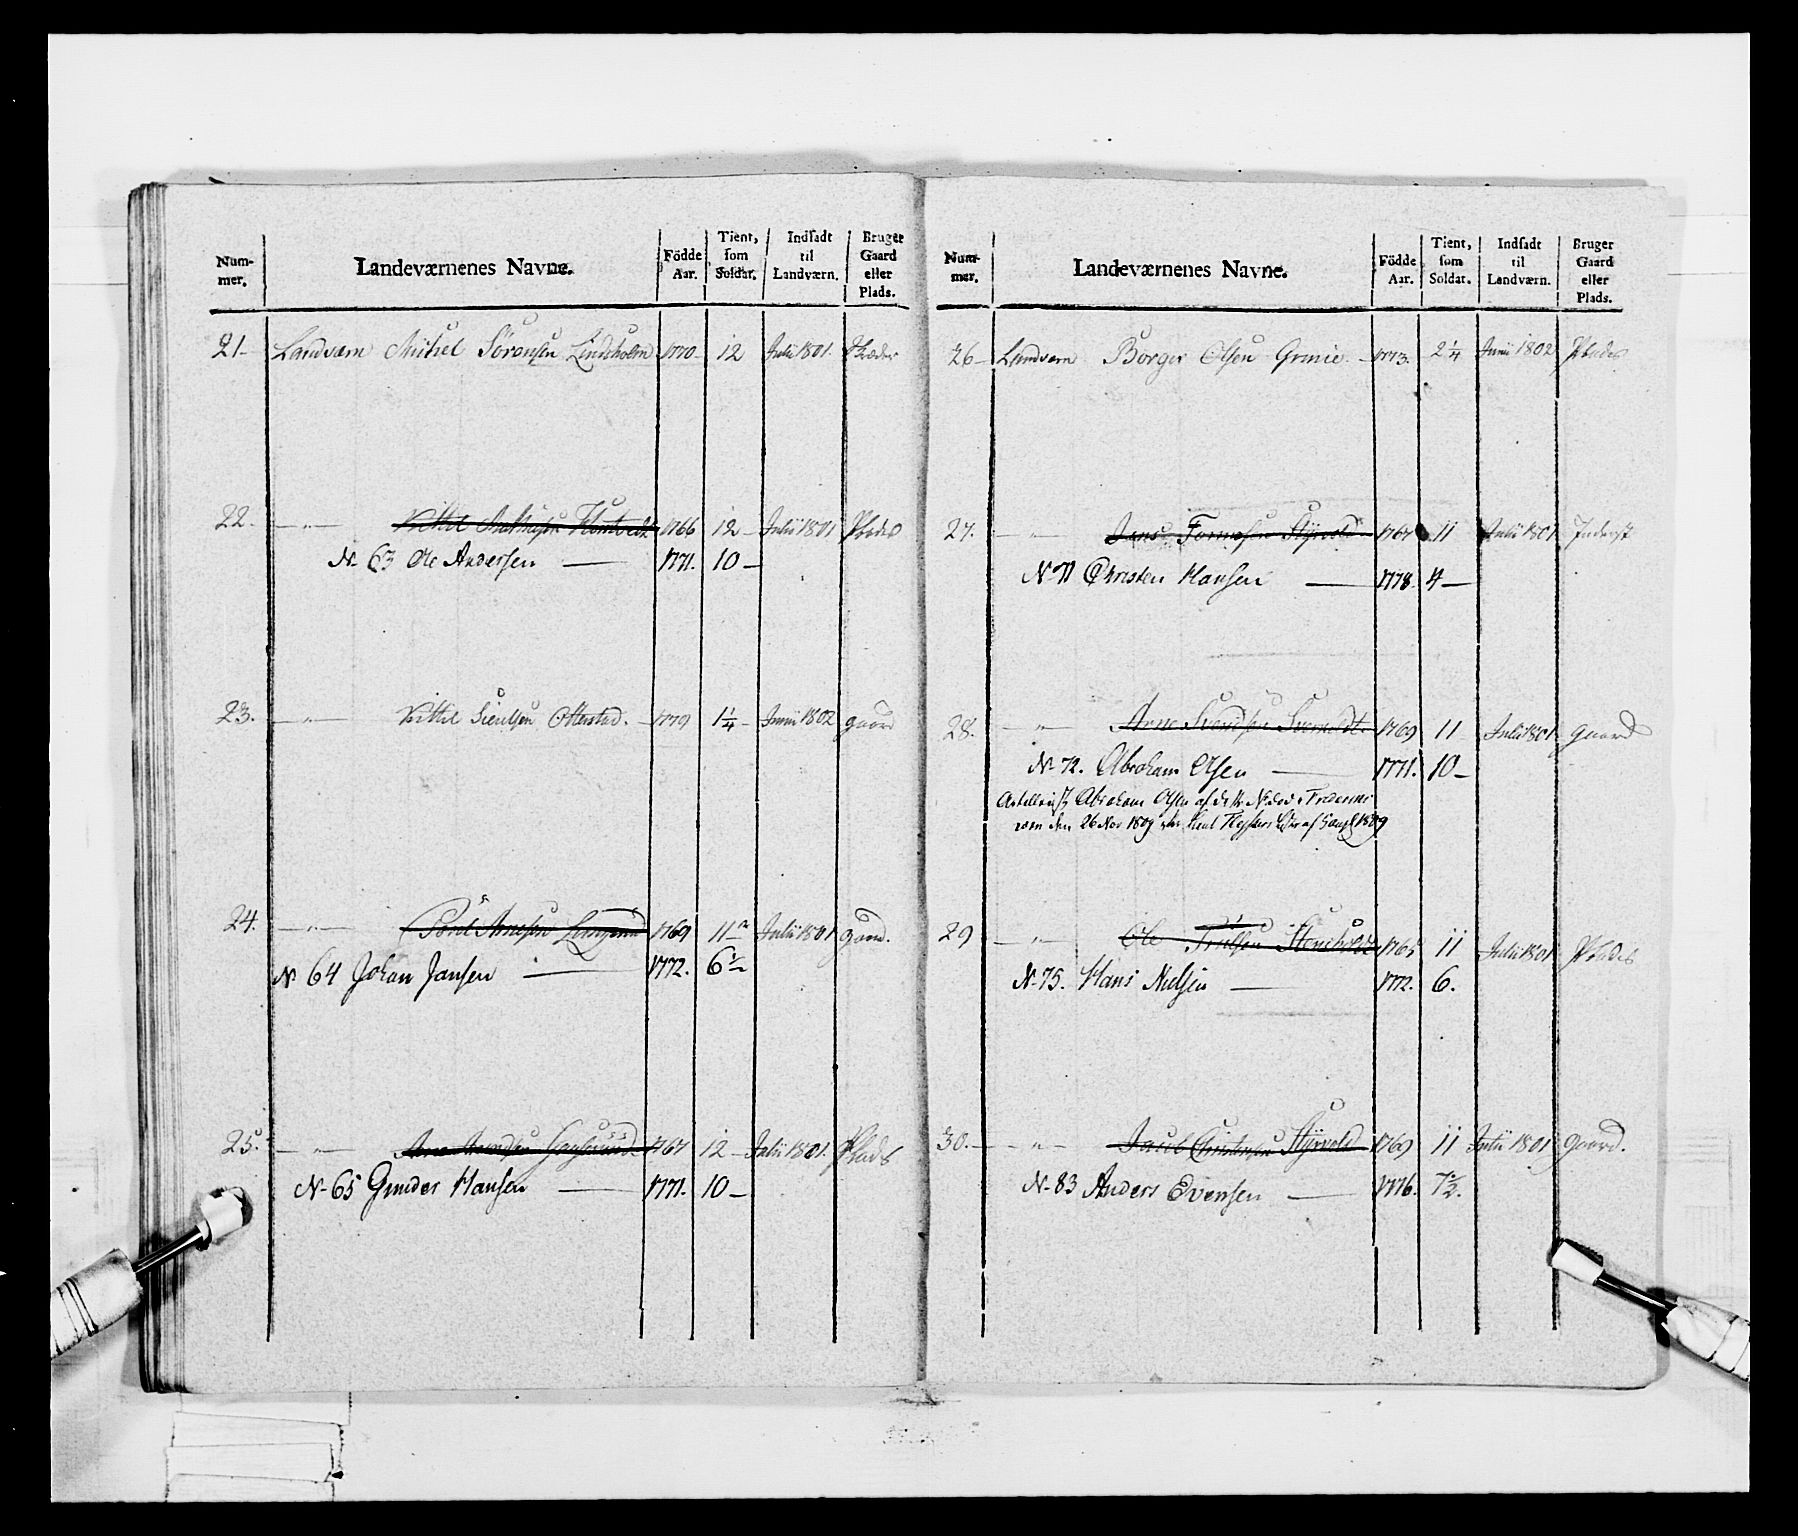 Num-
mer.
Landeværnenes Navne.
Födde
Aar.
Tient,
som
Soldat.
Indsadt
til
Landværn.
Bruger
Gaard
eller
Plads.
21 - Landværn Michel Sörensen Lindsholm 1770 12 Julii 1801.
22. — " — Kittel 1766 12 - Julii 1801 Plads
N- 63 Ole Andersen — 1771. 10 —
23. — " — Kittel Otterstad. - 1779 1 1/4 - Junii 1802 gaard
24. — " — Poul Arnesen 1769 11 Julii 1801 gaard.
N 64 Johan Jansen — 1772. 6 1/2
25. — " — 1767 12 - Julii 1801. Plads
N- 65 Gunder Hansen — 1771. 10 —
Num-
mer.
Landeværnenes Navne.
Födde
Aar.
Tient,
som
Soldat.
Indsadt
til
Landværn.
Bruger
Gaard
eller
Plads.
26 - Landværn Borger Olsen - 1773. 2 1/4 Junii 1802 Plads
27. — " — Jens Styrvold 1767 11 Julii 1801 Inderst
N- 71 Christen Hansen — 1778. 4 —
28. — " — Arne Svendsen 1769 11 Julii 1801 gaard
N- 72. Abraham Olsen — 1771. 10 —
Abraham Olsen af
den 26 Nov 1809 af 1809
29 — " — Ole 1765 11 Julii 1801 Plads
N- 75. Hans Nielsen — 1772. 6.
30. — " — Jacob Christensen Styrvold 1769 11 Julii 1801 gaard.
N- 83 Anders Evensen — 1776. 7 1/2.